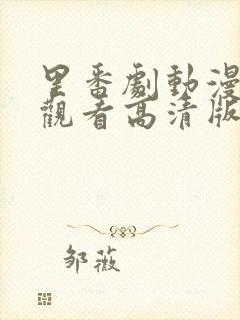 里番劇動漫
觀看高清版
邹薇